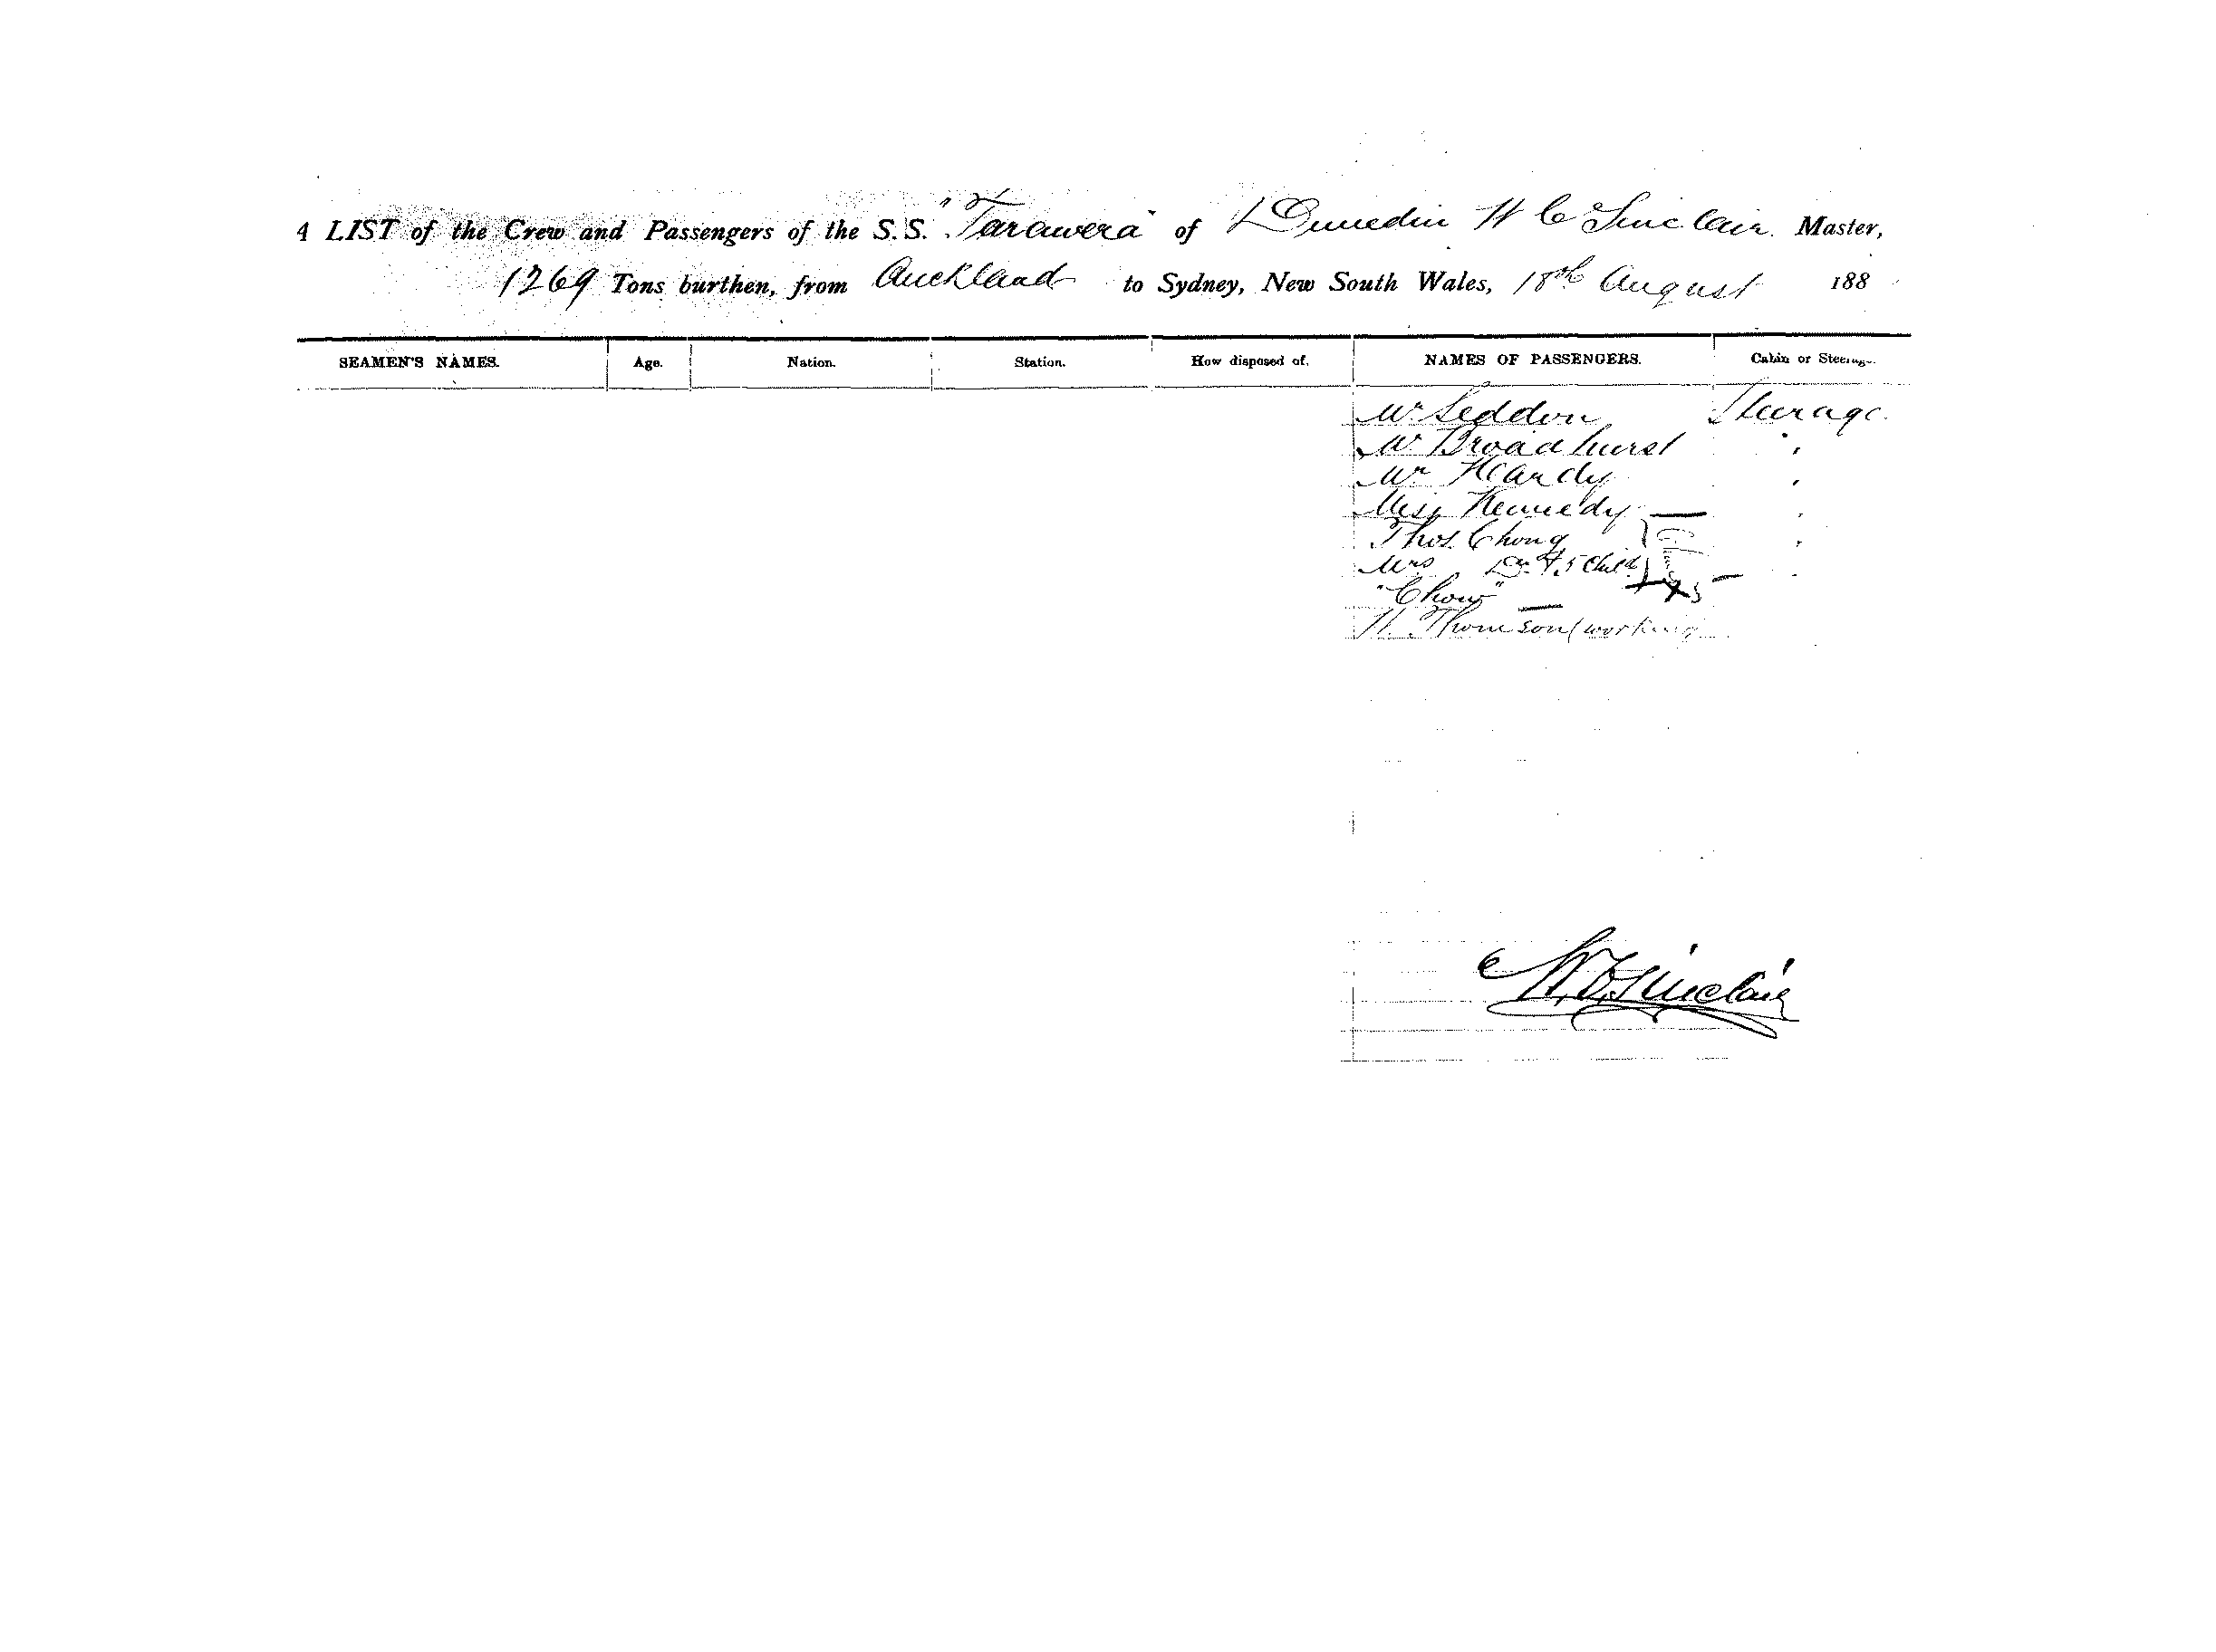 A LIST of the Crew and Passengers of the S.S. "Tarawera" of Dunedin W C Sinclair Master,
1269 Tons burthen, from Auckland to Sydney, New South Wales, 18th August 188
SEAMEN'S NAMES. Age. Nation. Station. How disposed of. NAMES OF PASSENGERS. Cabin or Steerage.
Mr Seddon Steerage
Mr Broadhurst "
Mr Hardy "
Miss Kennedy — "
Thos Chong "
Mrs Do & 5 Child "
"Chow" —
H. Thomson (working
W. C. Sinclair